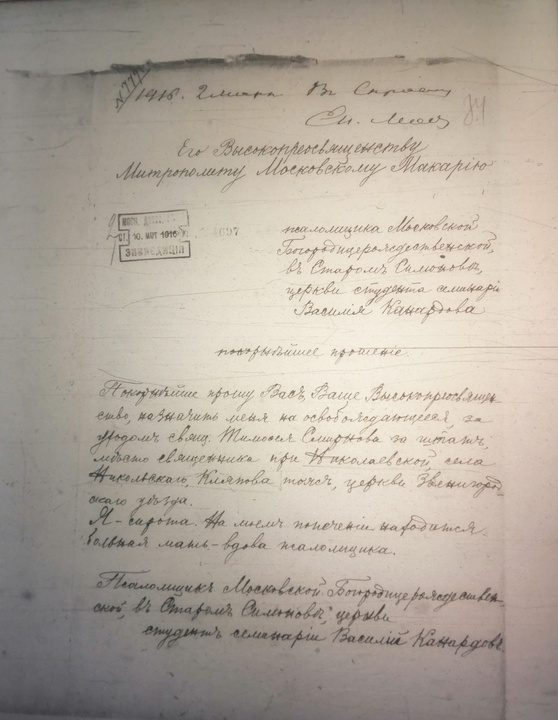 1916. 2 марта. Въ
Его Высокопреосвященству
Митрополиту Московскому Макарію
10. МАР 1916
ЭКСПЕДИЦІЯ
псаломщика Московской
Богородицерождественской,
въ Старомъ Симоновѣ,
церкви студента семинаріи
Василія Канардова
покорнѣйшее прошеніе.
Покорнѣйше прошу Васъ, Ваше Высокопреосвящен
ство, назначить меня на освобождающееся за
уходомъ свящ. Тимофея Смирнова за штатъ,
мѣсто священника при Николаевской, села
Никольскаго, Кляпова тожъ, церкви Звенигород-
скаго уѣзда.
Я - сирота. На моемъ попеченіи находится
больная мать-вдова псаломщика.
Псаломщикъ Московской Богородицерождествен-
ской, въ Старомъ Симоновѣ, церкви
студентъ семинаріи Василій Канардовъ